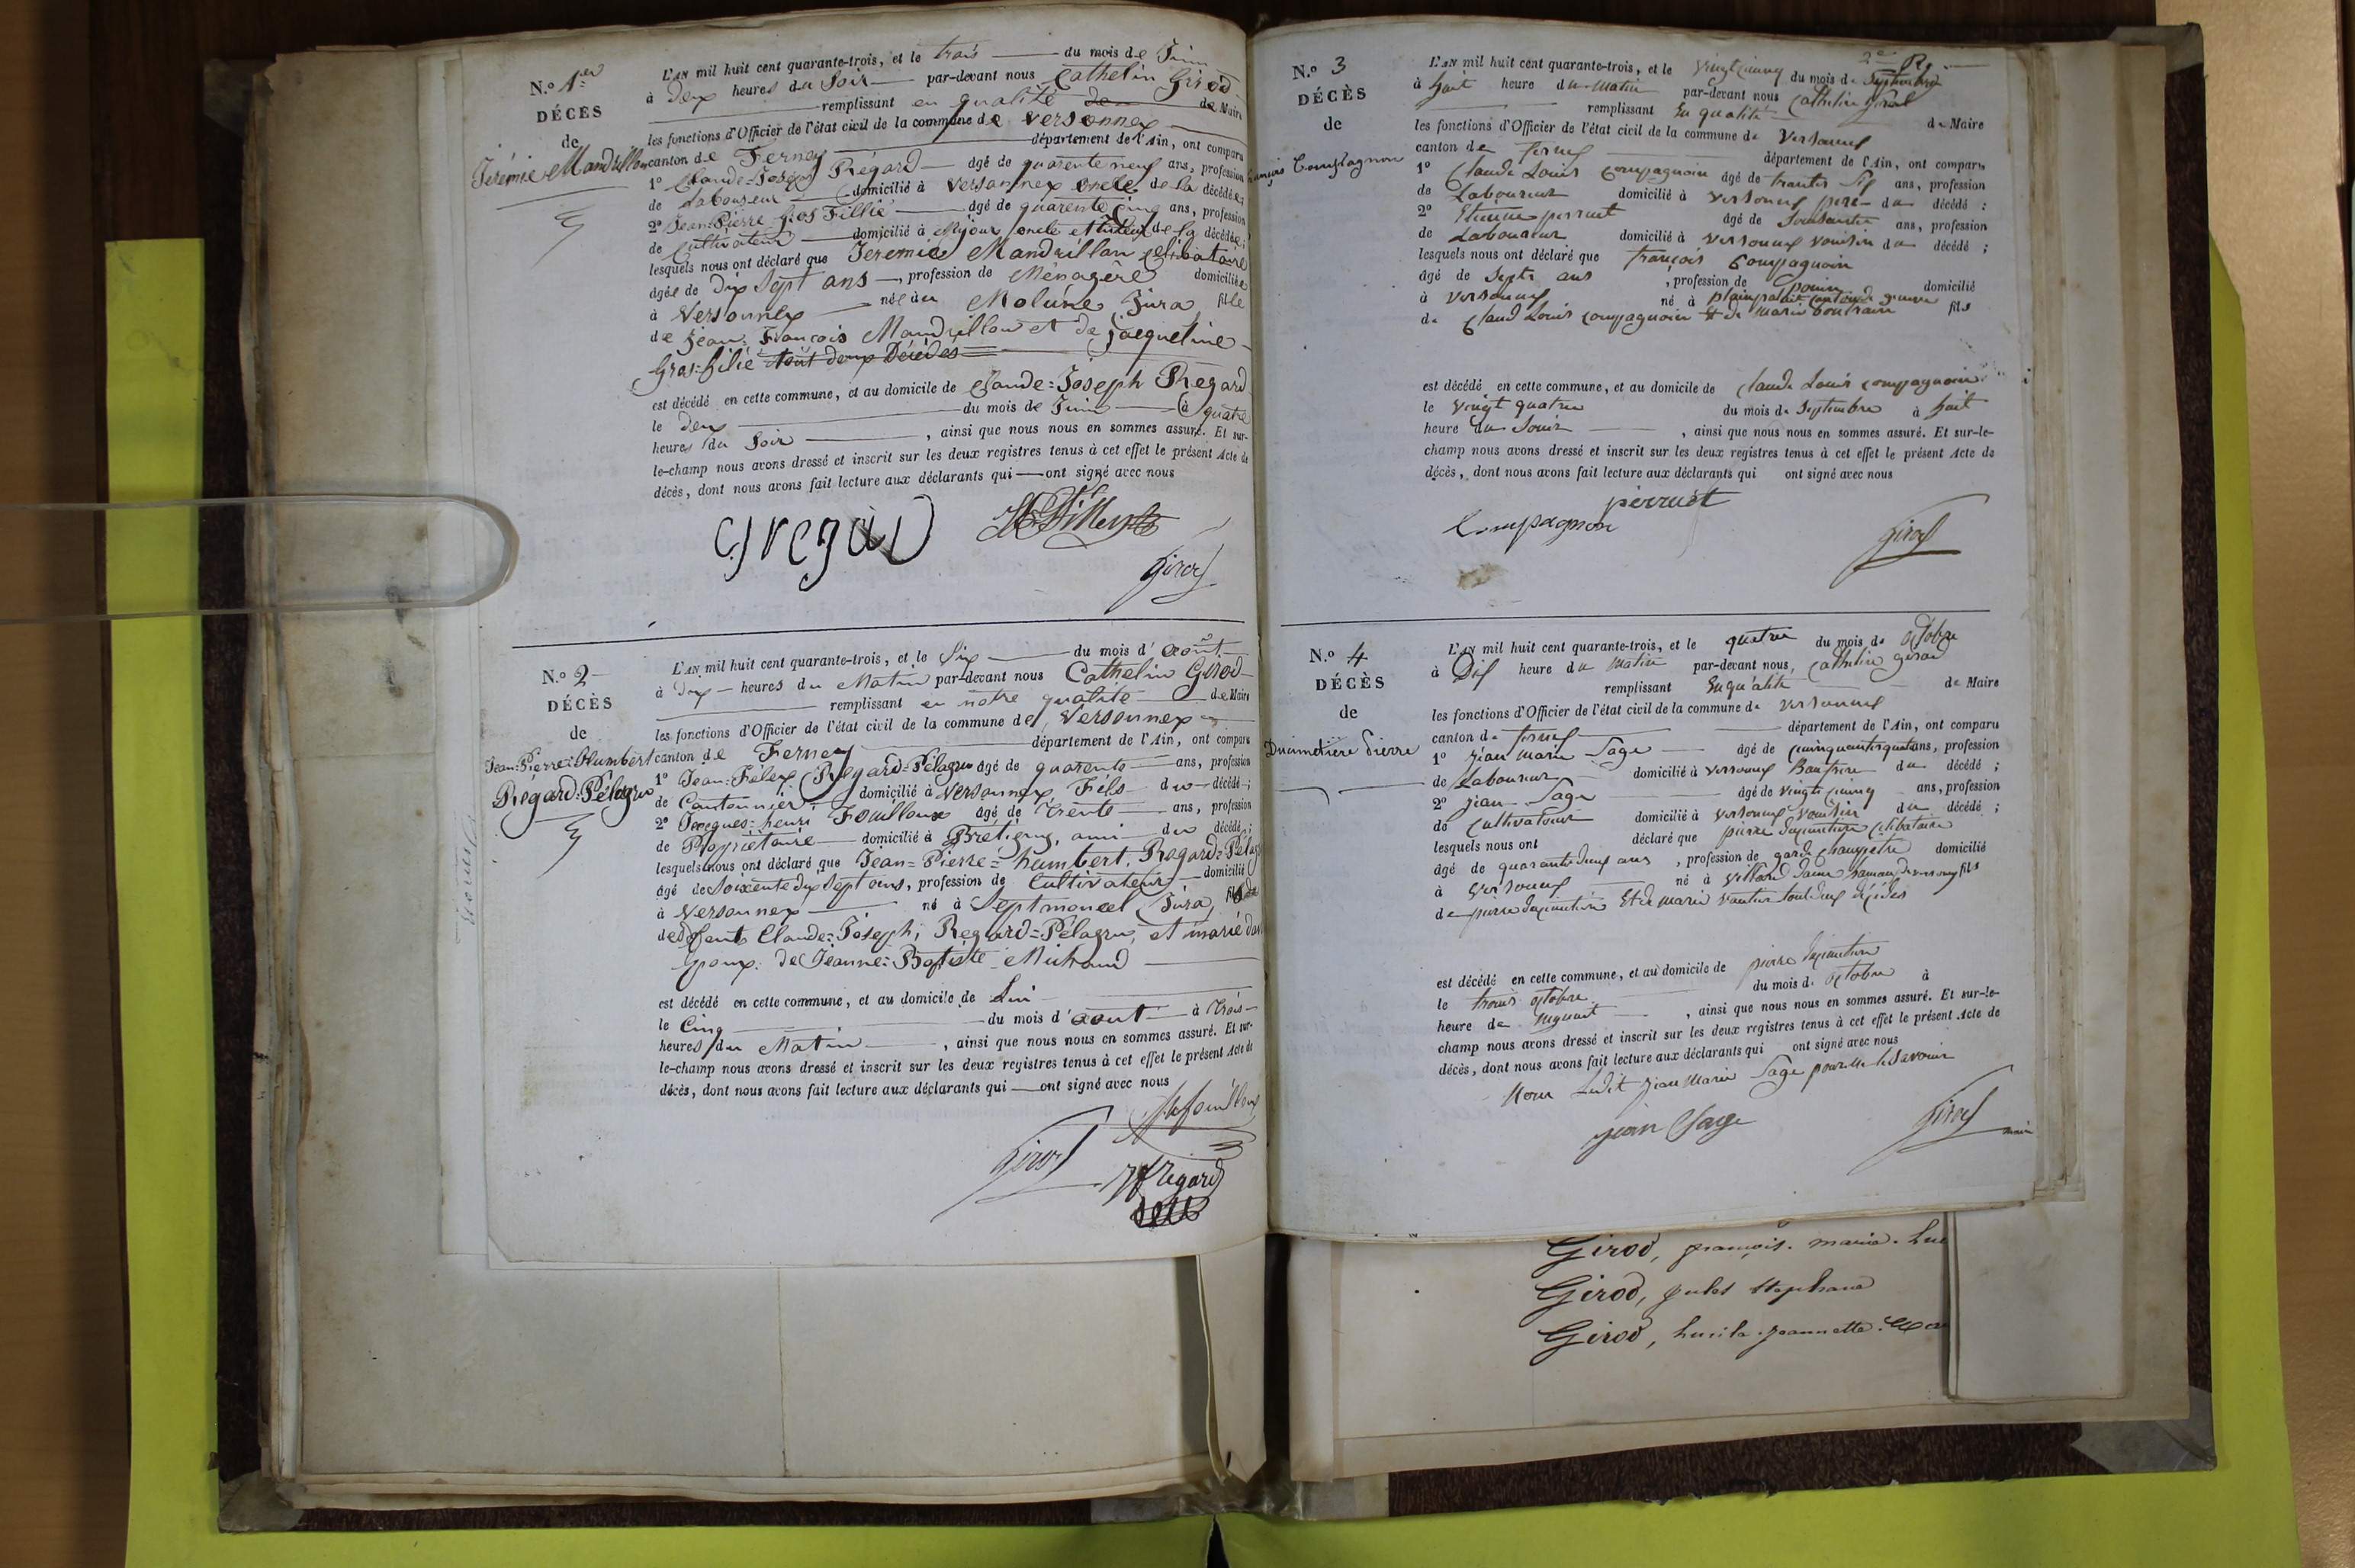 N.º 1.er
DÉCÈS
de
Jérémie Mandrillon
L'AN mil huit cent quarante-trois, et le trois du mois de Juin
à deux heures du Soir par-devant nous Cathelin Girod
remplissant en qualité de Maire
les fonctions d'Officier de l'état civil de la commune de Versonnex
canton de Ferney département de l'Ain, ont comparu
1º Claude-Joseph Régard âgé de quarente neuf ans, profession
de Laboureur domicilié à Versonnex oncle de la décédée;
2º Jean-Pierre Gros Fillié âgé de quarente cinq ans, profession
de Cultivateur domicilié à Mijoux oncle et tuteur de la décédée;
lesquels nous ont déclaré que Jérémie Mandrillon célibataire
âgée de dix Sept ans, profession de Ménagère domiciliée
à Versonnex née à Jura fille
de Jean-François Mandrillon et de Jacqueline
Gros-filié tout deux Décédés
est décédé en cette commune, et au domicile de Claude=Joseph Régard
le deux du mois de Juin à quatre
heures du Soir, ainsi que nous nous en sommes assuré. Et sur-
le-champ nous avons dressé et inscrit sur les deux registres tenus à cet effet le présent Acte de
décès, dont nous avons fait lecture aux déclarants qui ont signé avec nous
Girod
N.º 2
DÉCÈS
de
Jean-Pierre-Humbert
Regard-Pélagru
L'AN mil huit cent quarante-trois, et le Six du mois d'août
à dix heures du Matin par-devant nous Cathelin Girod
remplissant en notre qualité de Maire
les fonctions d'Officier de l'état civil de la commune de Versonnex
canton de Ferney département de l'Ain, ont comparu
1º Jean-Félex Regard=Pélagru âgé de quarente ans, profession
de Cantonnier domicilié à Versonnex Fils du décédé;
2º Jacques-henri Fouilloux âgé de Trente ans, profession
de Propriétaire domicilié à Brétigny, ami du décédé;
lesquels nous ont déclaré que Jean=Pierre=humbert Regard=Pélag
âgé de Soixente dix Sept ans, profession de Cultivateur domicilié
à Versonnex né à Septmoncel Jura, fils
Claude=Joseph Regard=Pélagru, et marie
Epoux de Jeanne=Baptiste Michaud
est décédé en cette commune, et au domicile de Lui
le Cinq du mois d'aout à trois
heures du Matin, ainsi que nous nous en sommes assuré. Et sur-
le-champ nous avons dressé et inscrit sur les deux registres tenus à cet effet le présent Acte de
décès, dont nous avons fait lecture aux déclarants qui ont signé avec nous
Girod
Regard
N.º 3
DÉCÈS
de
Compagnon
L'AN mil huit cent quarante-trois, et le vingt cinq du mois de Septembre
à huit heure du matin par-devant nous Cathelin Girod
remplissant En qualité de Maire
les fonctions d'Officier de l'état civil de la commune de Versonnex
canton de ferney département de l'Ain, ont comparu
1º Claude Louis Compagnoin âgé de trante Six ans, profession
de Laboureur domicilié à Versonnex père du décédé;
2º Etienne perruet âgé de Soissante ans, profession
de Laboureur domicilié à Versonnex voisin du décédé;
lesquels nous ont déclaré que françois Compagnoin
âgé de Septs ans, profession de domicilié
à Versonnex né à plainpalait canton de geneve fils
de Claud Louis Compagnoin Et de Marie
est décédé en cette commune, et au domicile de Claude Louis Compagnoin
le vingt quatre du mois de Septembre à huit
heure du Soir, ainsi que nous nous en sommes assuré. Et sur-le-
champ nous avons dressé et inscrit sur les deux registres tenus à cet effet le présent Acte de
décès, dont nous avons fait lecture aux déclarants qui ont signé avec nous
perruet
Compagnon
Girod
N.º 4
DÉCÈS
de
Ducimetiere Pierre
L'AN mil huit cent quarante-trois, et le quatre du mois de octobre
à Dix heure du Matin par-devant nous, Cathelin girod
remplissant En qualité de Maire
les fonctions d'Officier de l'état civil de la commune de Versonnex
canton de ferney département de l'Ain, ont comparu
1º jean Marie Sage âgé de ans, profession
de Laboureur domicilié à Versonnex du décédé;
2º jean Sage âgé de vingt cinq ans, profession
de Cultivateur domicilié à Versonnex voisin du décédé;
lesquels nous ont déclaré que pierre Ducimetière Célibataire
âgé de quarante deux ans, profession de garde champetre domicilié
à Versonnex né à fils
de pierre Ducimetière Et de marie tout deux décédés
est décédé en cette commune, et au domicile de pierre Ducimetière
le trois octobre du mois de octobre à
heure de, ainsi que nous nous en sommes assuré. Et sur-le-
champ nous avons dressé et inscrit sur les deux registres tenus à cet effet le présent Acte de
décès, dont nous avons fait lecture aux déclarants qui ont signé avec nous
Non Ledit jean Marie Sage pour ne le Savoir
jean Sage
Girod maire
Girod, françois. marie.
Girod, jules Stephane
Girod, Lucile. jeannette.